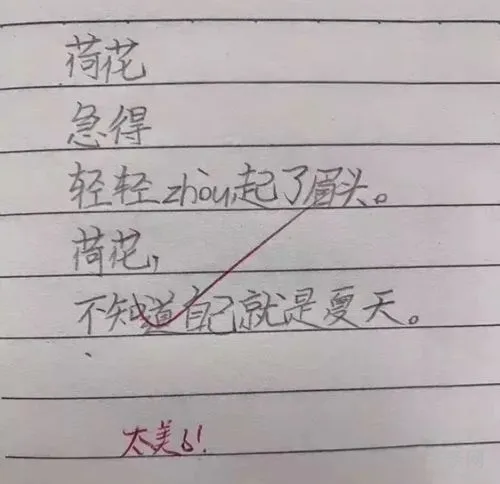 荷花
急得
轻轻zhou起了眉头。
荷花，
不知道自己就是夏天。
太美了！